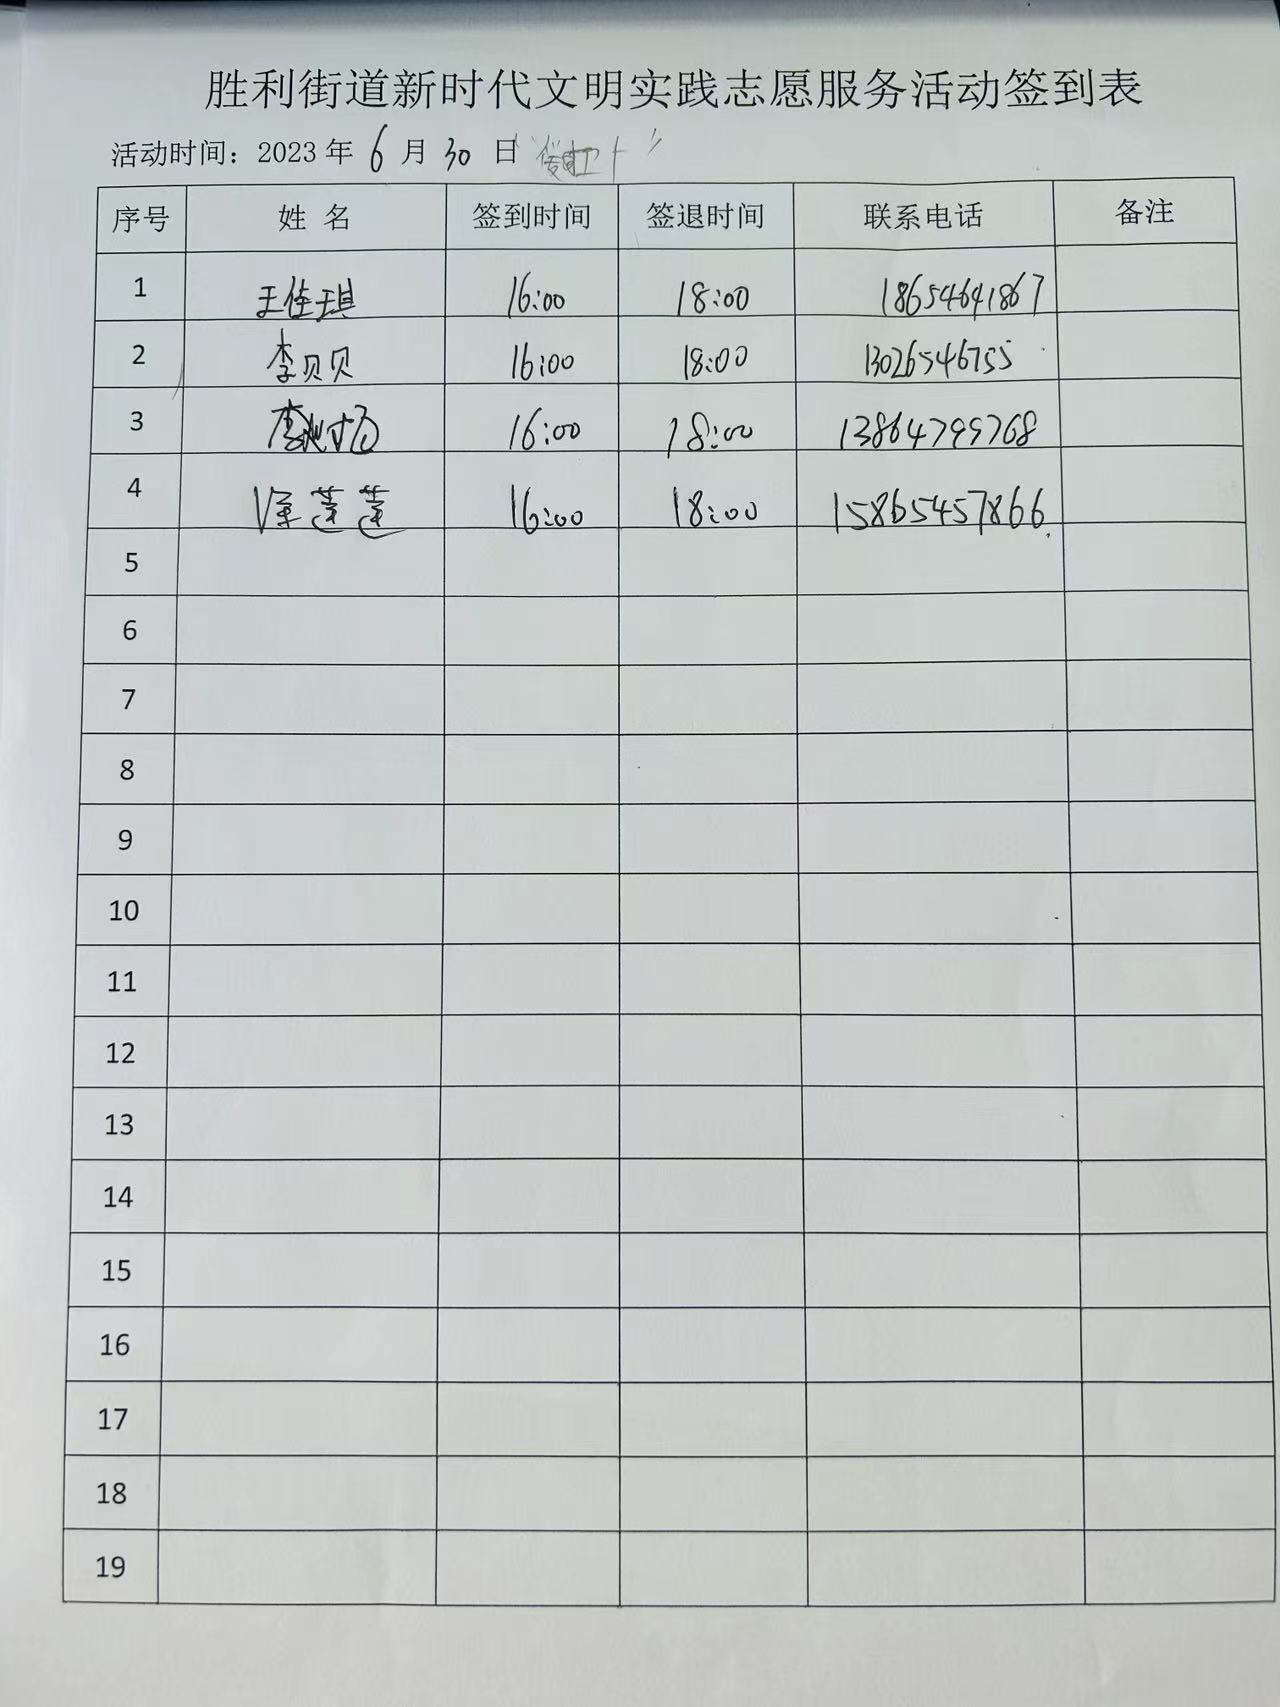 胜利街道新时代文明实践志愿服务活动签到表
活动时间：2023 年 6 月 30 日
序号 姓 名 签到时间 签退时间 联系电话 备注
1 王佳琪 16:00 18:00 18654641867
2 李贝贝 16:00 18:00 13026546755
3 16:00 18:00 13864799768
4 莲莲 16:00 18:00 15865457866
5
6
7
8
9
10
11
12
13
14
15
16
17
18
19